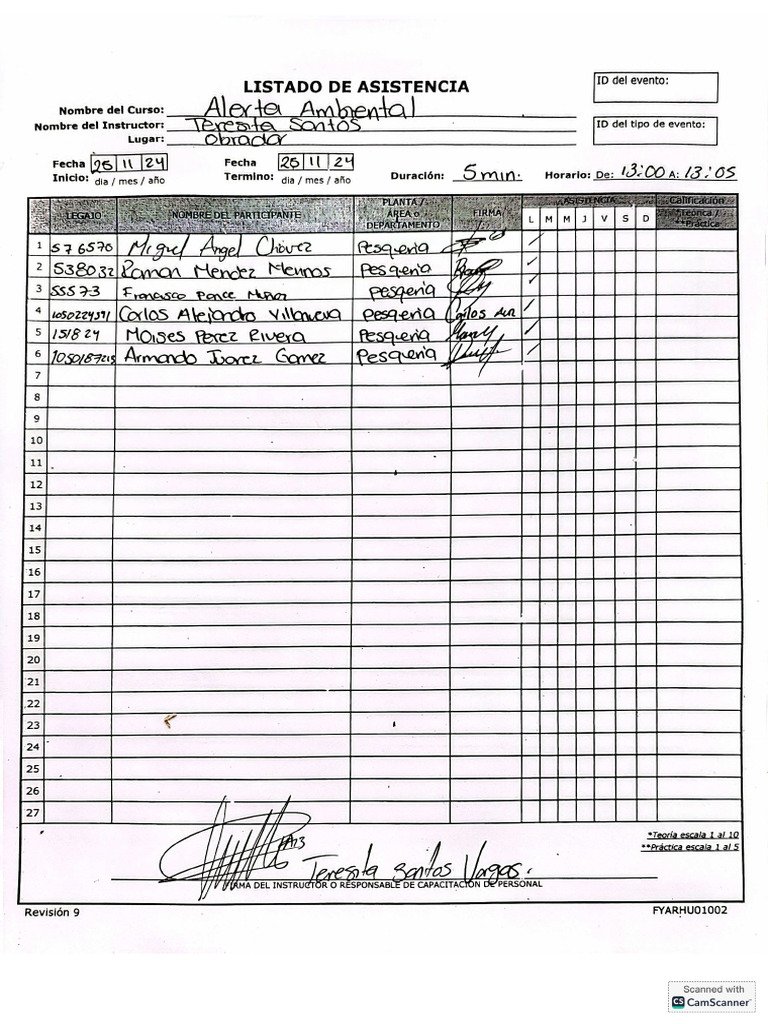 LISTADO DE ASISTENCIA
ID del evento:
Nombre del Curso: Alerta Ambiental
Nombre del Instructor: Teresita Santos
ID del tipo de evento:
Lugar: obrador
Fecha Inicio: 25 11 24 dia / mes / año
Fecha Termino: 25 11 24 dia / mes / año
Duración: 5 min.
Horario: De: 13:00 A: 13:05
LEGAJO NOMBRE DEL PARTICIPANTE PLANTA / ÁREA o DEPARTAMENTO FIRMA ASISTENCIA L M M J V S D Calificación *Teórica / **Práctica
1 576570 Miguel Angel Chávez Pesqueria
2 538032 Ramon Mendez Pesqueria
3 55573 Francisco Ponce Muñoz Pesqueria
4 1050224591 Carlos Alejandro Villanueva Pesqueria Carlos
5 151824 Moises Perez Rivera Pesqueria
6 1050187215 Armando Juarez Gomez Pesqueria
7
8
9
10
11
12
13
14
15
16
17
18
19
20
21
22
23
24
25
26
27
*Teoría escala 1 al 10
**Práctica escala 1 al 5
Teresita Santos Vargas.
FIRMA DEL INSTRUCTOR O RESPONSABLE DE CAPACITACIÓN DE PERSONAL
Revisión 9
FYARHU01002
Scanned with
CS CamScanner